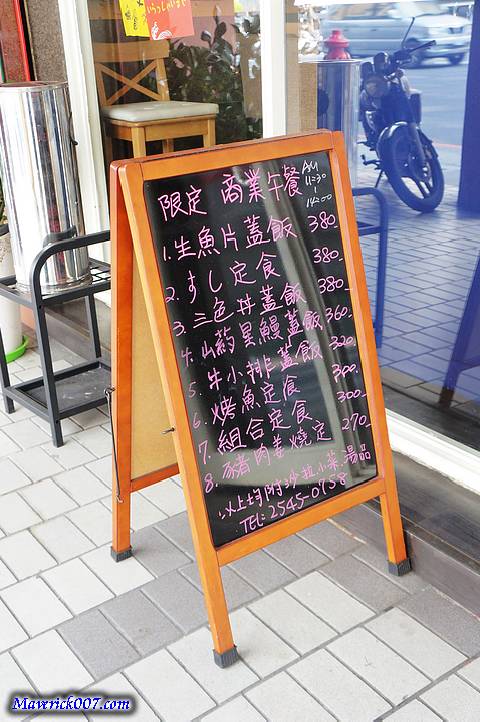 いらっしゃいませ
限定 商業午餐
AM
11:30
|
14:00
1. 生魚片蓋飯 380-
2. すし定食 380-
3. 三色丼蓋飯 380-
4. 山葯黑鰻蓋飯 360-
5. 牛小排蓋飯 320-
6. 烤魚定食 300-
7. 組合定食 300-
8. 豬肉姜燒定 270-
以上均附沙拉.小菜.湯品
TEL: 2545-0758
Maverick007.com